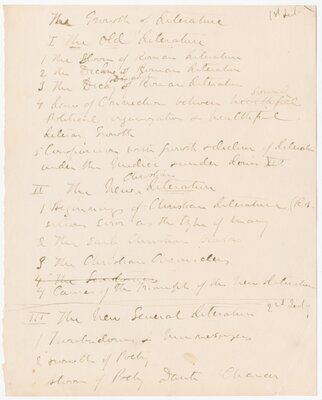 The Growth of Literature
1st Lect.
I The Old Literature
1 The Bloom of Roman Literature
2 The Decline of Roman Literature
3 The Decay of Roman Literature
4 Laws of Connection between
Political organization & healthful
Literary Growth
5 Comparison with growth & decline of literature
under the & under Louis XIV
Christian
II The New Literature
1 Beginnings of Christian Literature
error as the type of many
2 The Early Christian
3 The Christian Chroniclers
4 The
4 Causes of the Triumph of the New Literature
2nd Lect.
III The New General Literature
1 Troubadours & Minnesingers
2 Growth of Poetry
3 Bloom of Poetry Dante Chaucer